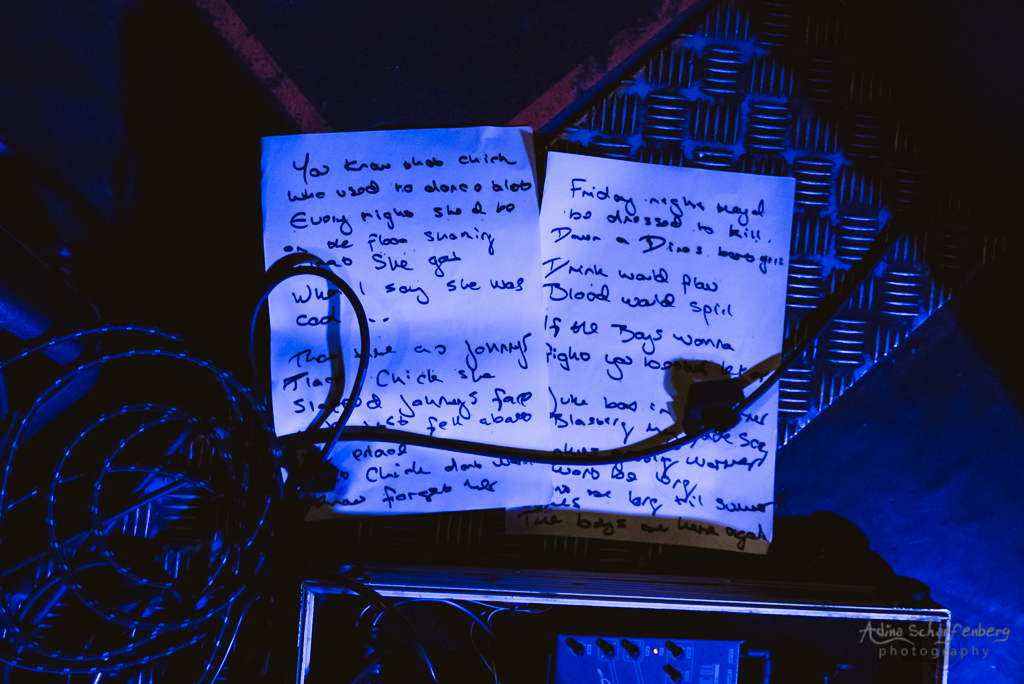 You know that chick
who used to dance a lot
Every night she'd be
on the floor shaking
what she got
When I say she was
cool ...
That time as Johnny's
Chick she
Slapped Johnny's face
just fell about
place
Chick don't wan
forget her
Friday night they'd
be dressed to kill.
Down a Dino's bar & grill
Drink would flow
Blood would spill
If the Boys wanna
fight you better let em
Juke box in
Blasting
won't be long,
no be long til summer
The boys are here again
Adina Scharfenberg
photography